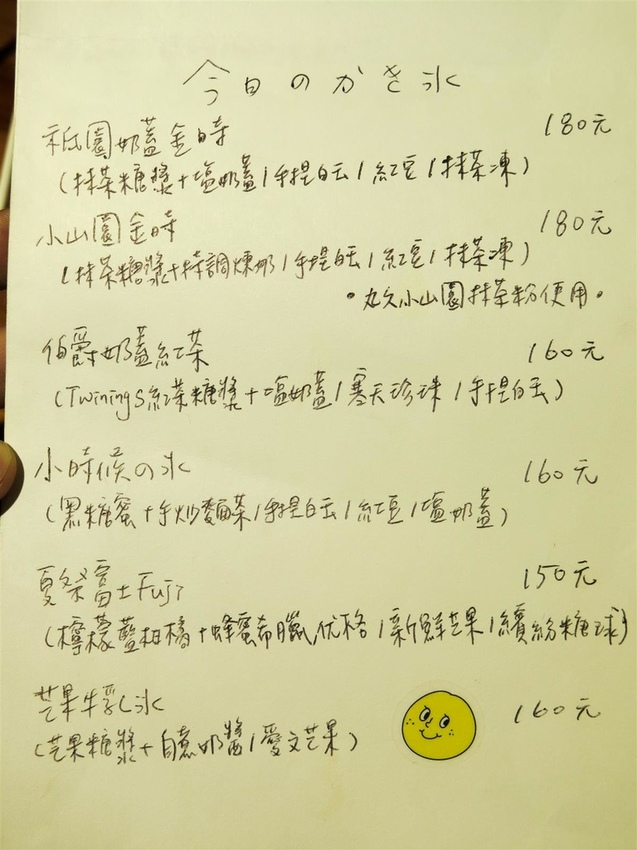 今日のかき氷
祇園奶蓋金時 180元
(抹茶糖漿+塩奶蓋/手捏白玉/紅豆/抹茶凍)
小山園金時 180元
(抹茶糖漿+特調煉奶/手捏白玉/紅豆/抹茶凍)
•丸久小山園抹茶粉使用•
伯爵奶蓋紅茶 160元
(Twinings紅茶糖漿+塩奶蓋/寒天珍珠/手捏白玉)
小時候の氷 160元
(黑糖蜜+手炒麵茶/手捏白玉/紅豆/塩奶蓋)
夏祭富士Fuji 150元
(檸檬藍柑橘+蜂蜜希臘优格/新鮮芒果/繽紛糖球)
芒果牛乳氷 160元
(芒果糖漿+自煮奶醬/愛文芒果)